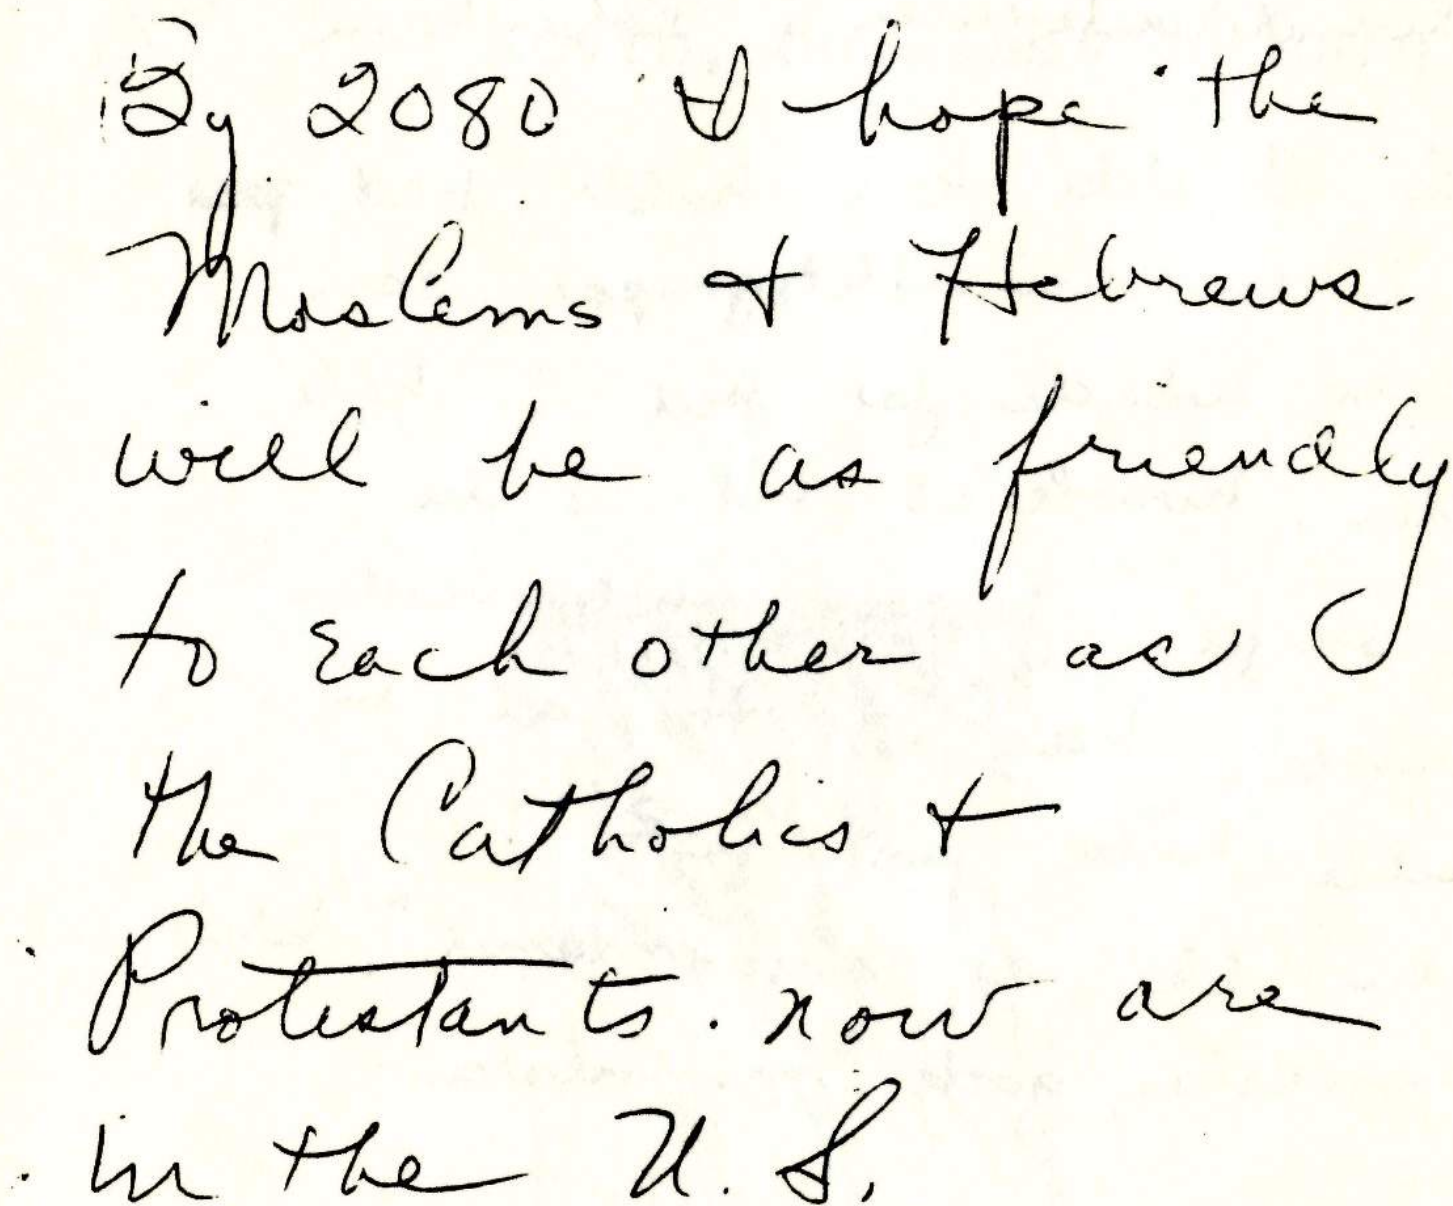 By 2080 I hope the
Moslems & Hebrews
will be as friendly
to each other as
the Catholics &
Protestants now are
in the U. S.